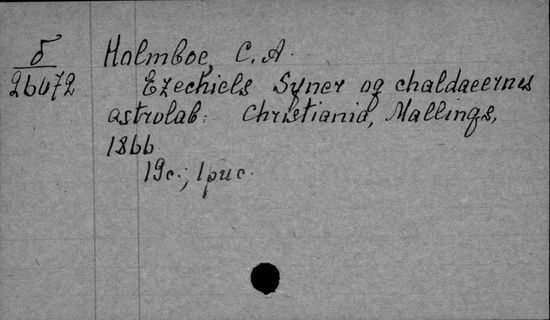 б
26072
Holmboe, C. A.
Ezechiels Syner og chaldaeernes
astrolab. Christiania, Mallings,
1866
19с.; 1рис.